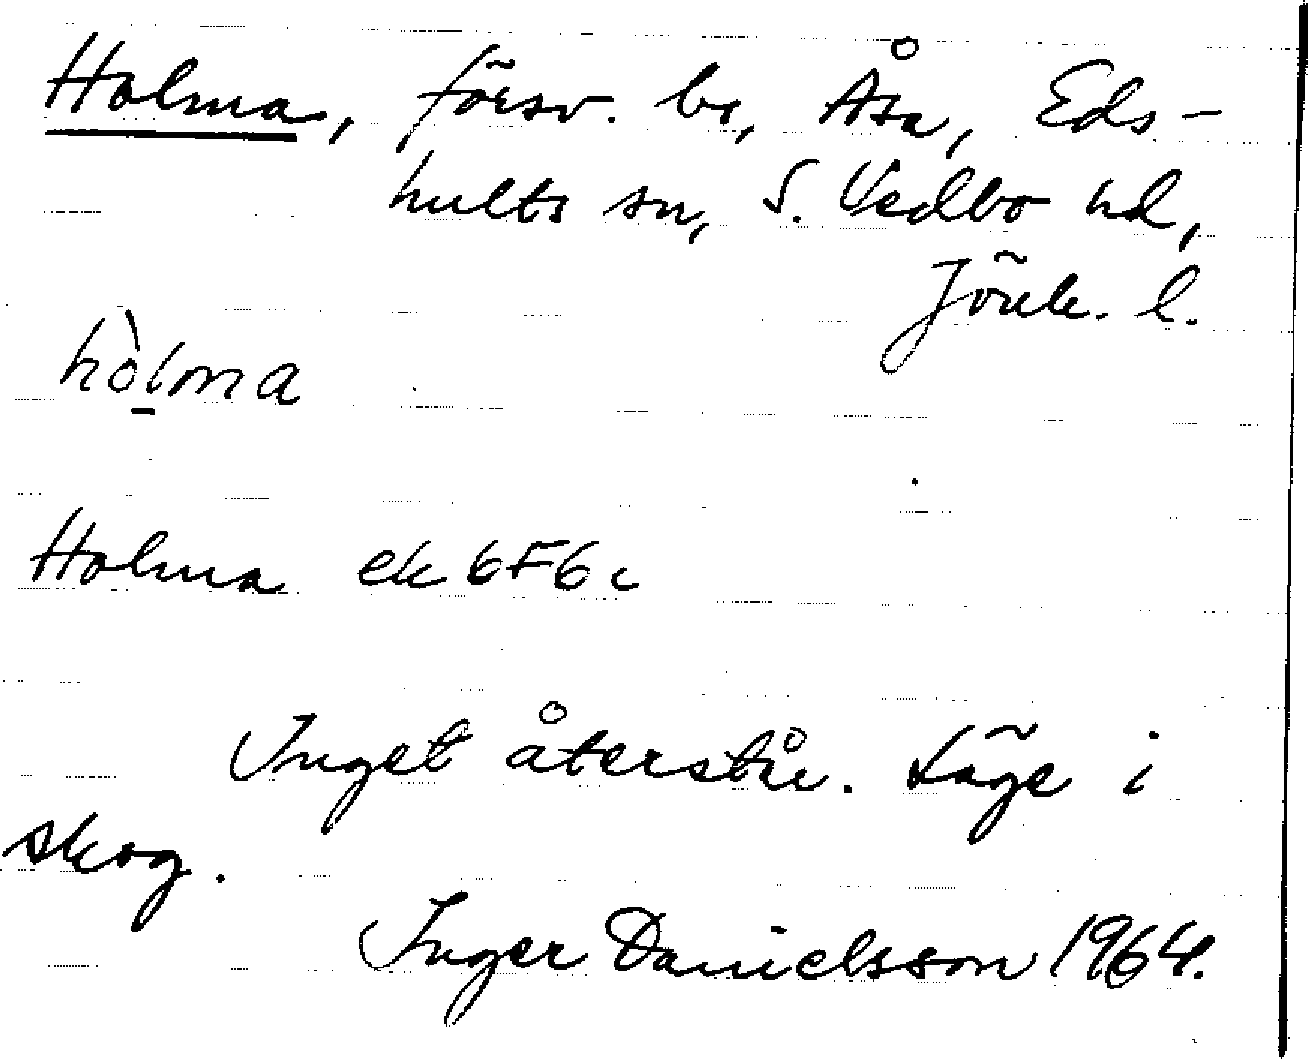 Holma, försv. be, Åsa, Eds-
hults sn, S. Vedbo hd,
Jönk. l.
hòlma
Holma ek 6F6c
Inget återstår. Läge i
skog.
Inger Danielsson 1964.